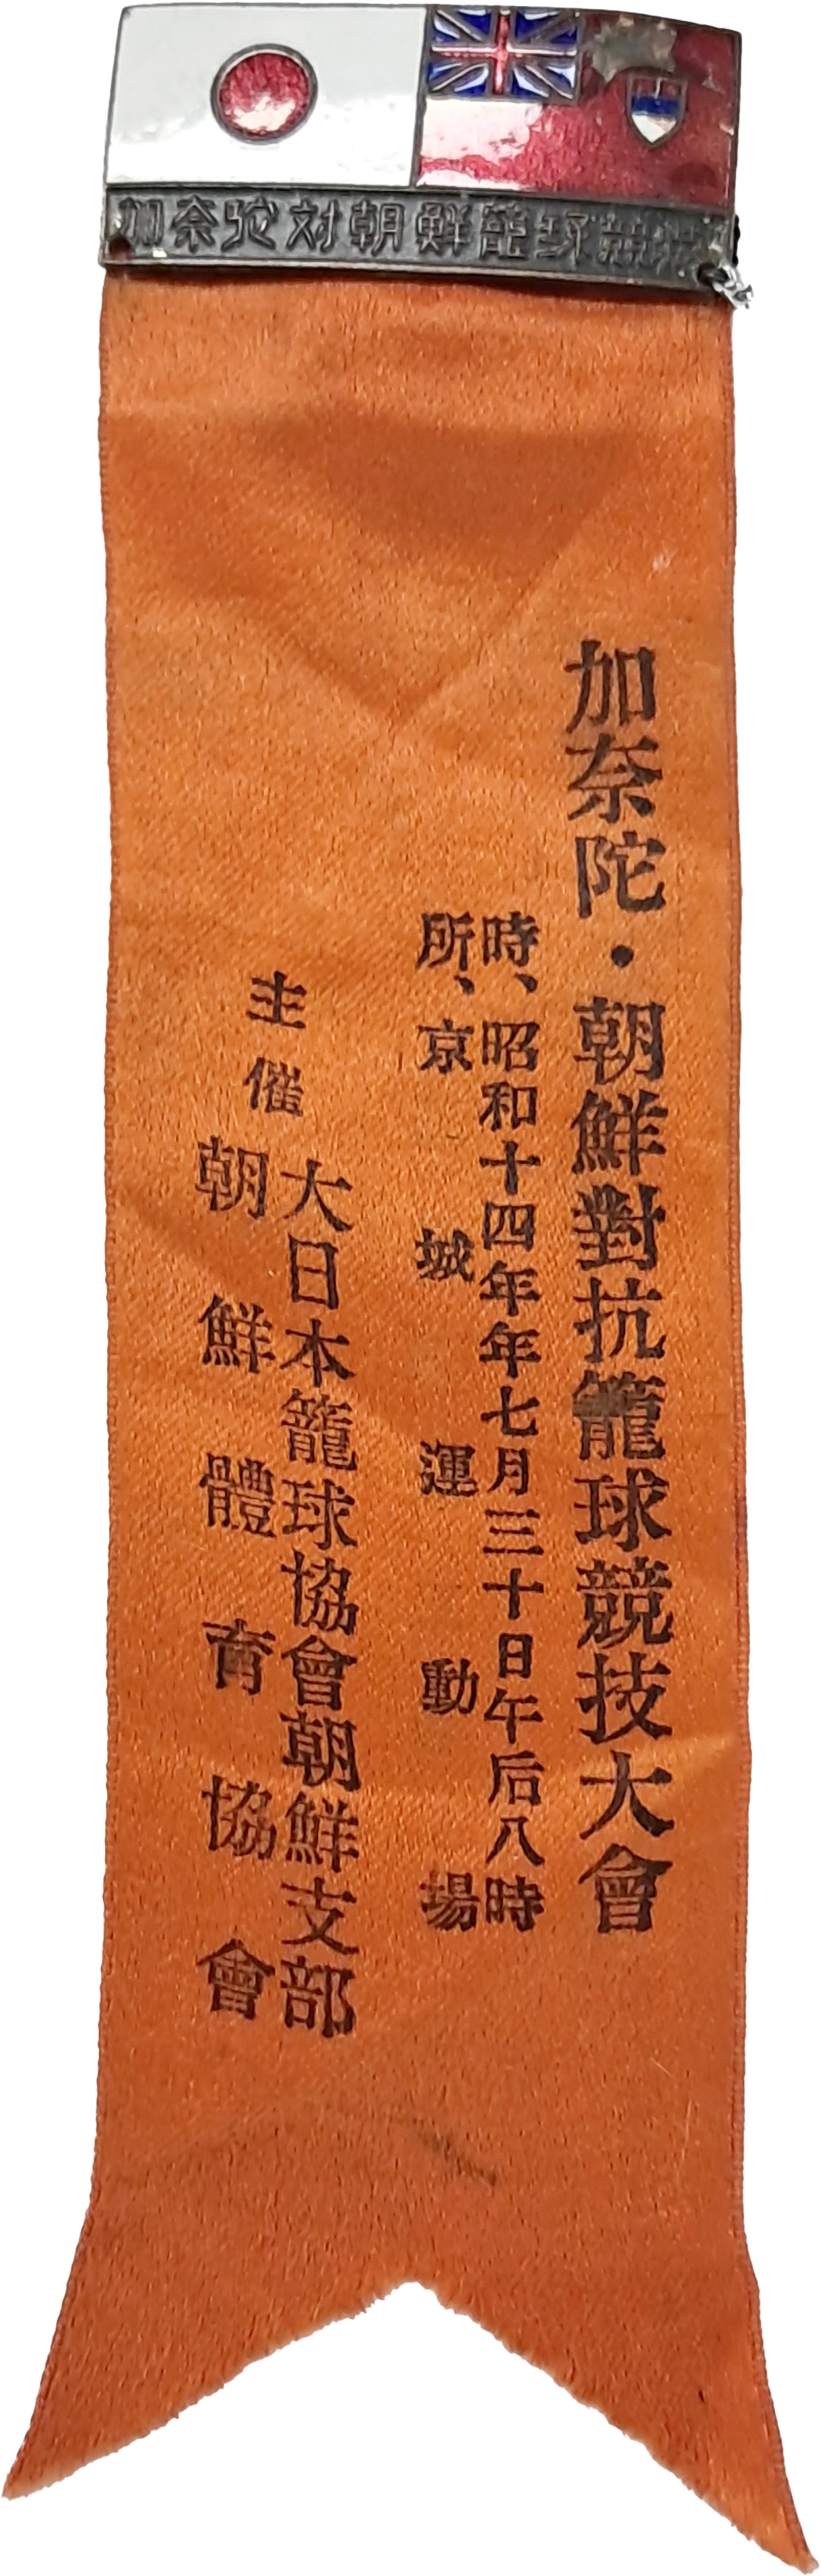 加奈陀対朝鮮籠球競技
加奈陀・朝鮮對抗籠球競技大會
時、昭和十四年年七月三十日午后八時
所、京城運動場
主催
大日本籠球協會朝鮮支部
朝鮮體育協會